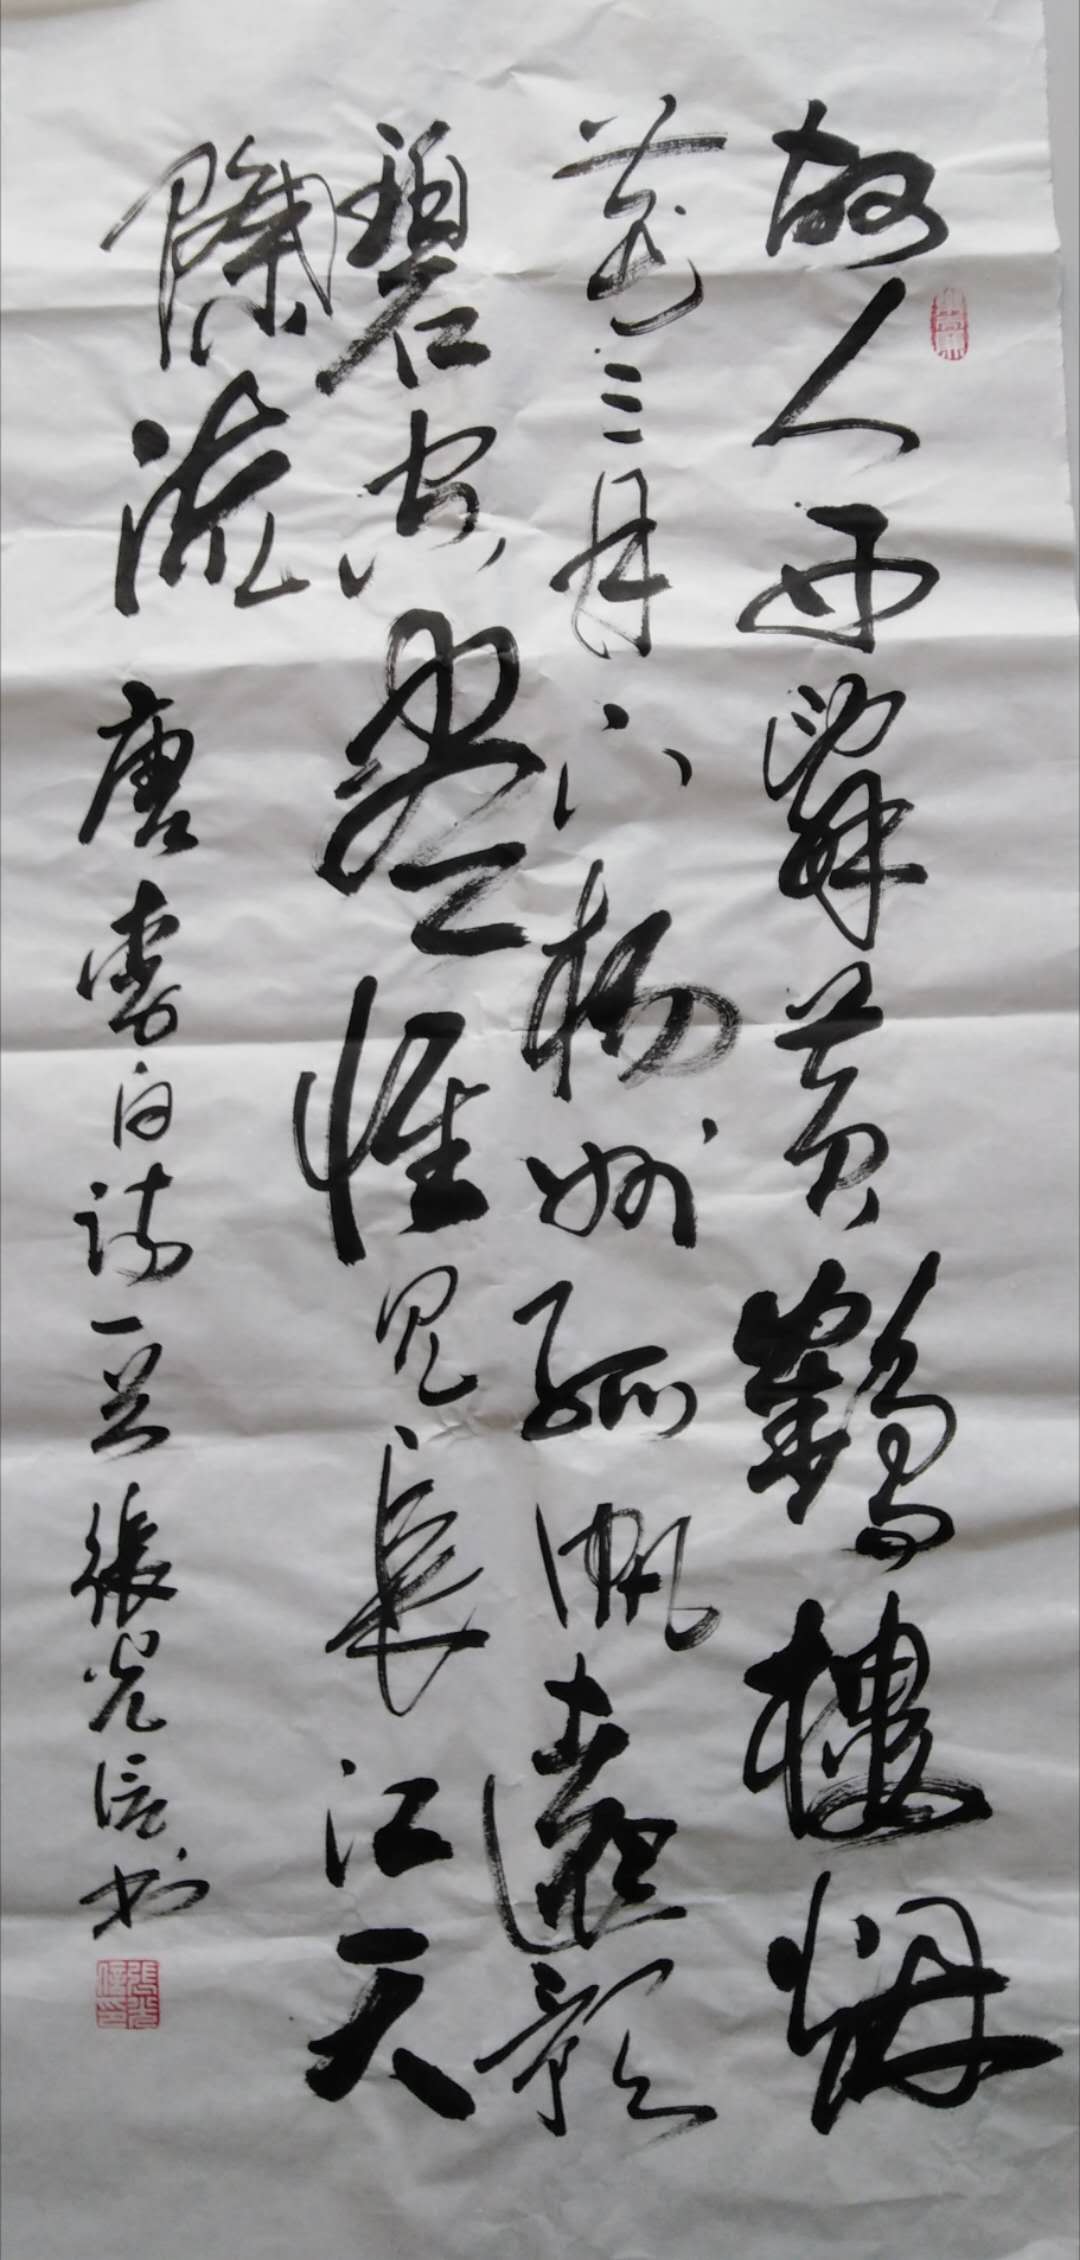 故人西辭黃鶴樓烟
花三月下楊州孤帆遠影
碧空盡惟見長江天
際流 唐李白詩一首 張光信書
張光信印